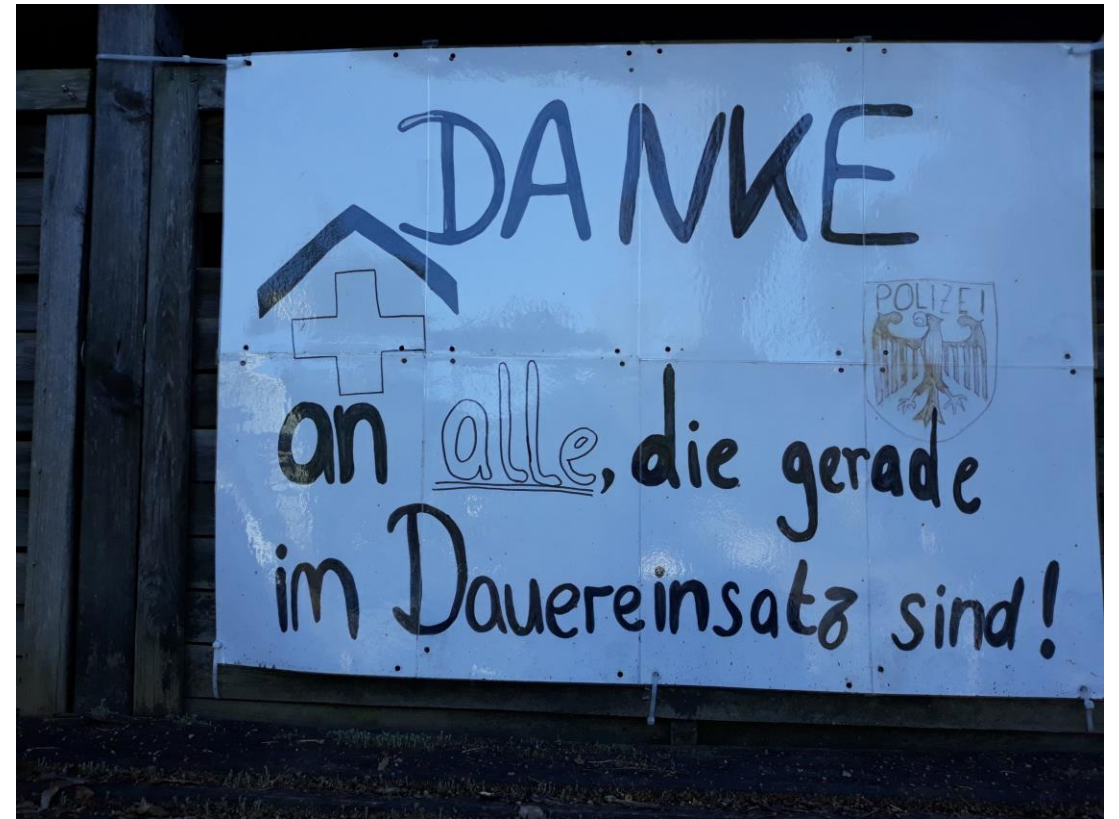 DANKE
POLIZEI
an alle, die gerade
im Dauereinsatz sind!